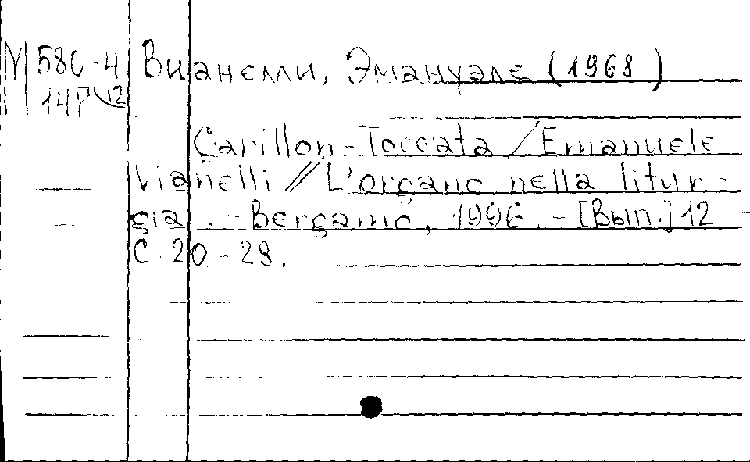 М 586-4 Вианелли, Эмануэле (1968)
147 12
Carillon-Toccata / Emanuele
Vianelli // L'organo nella litur-
gia. - Bergamo, 1996. - [Вып.] 12
С. 20-28.